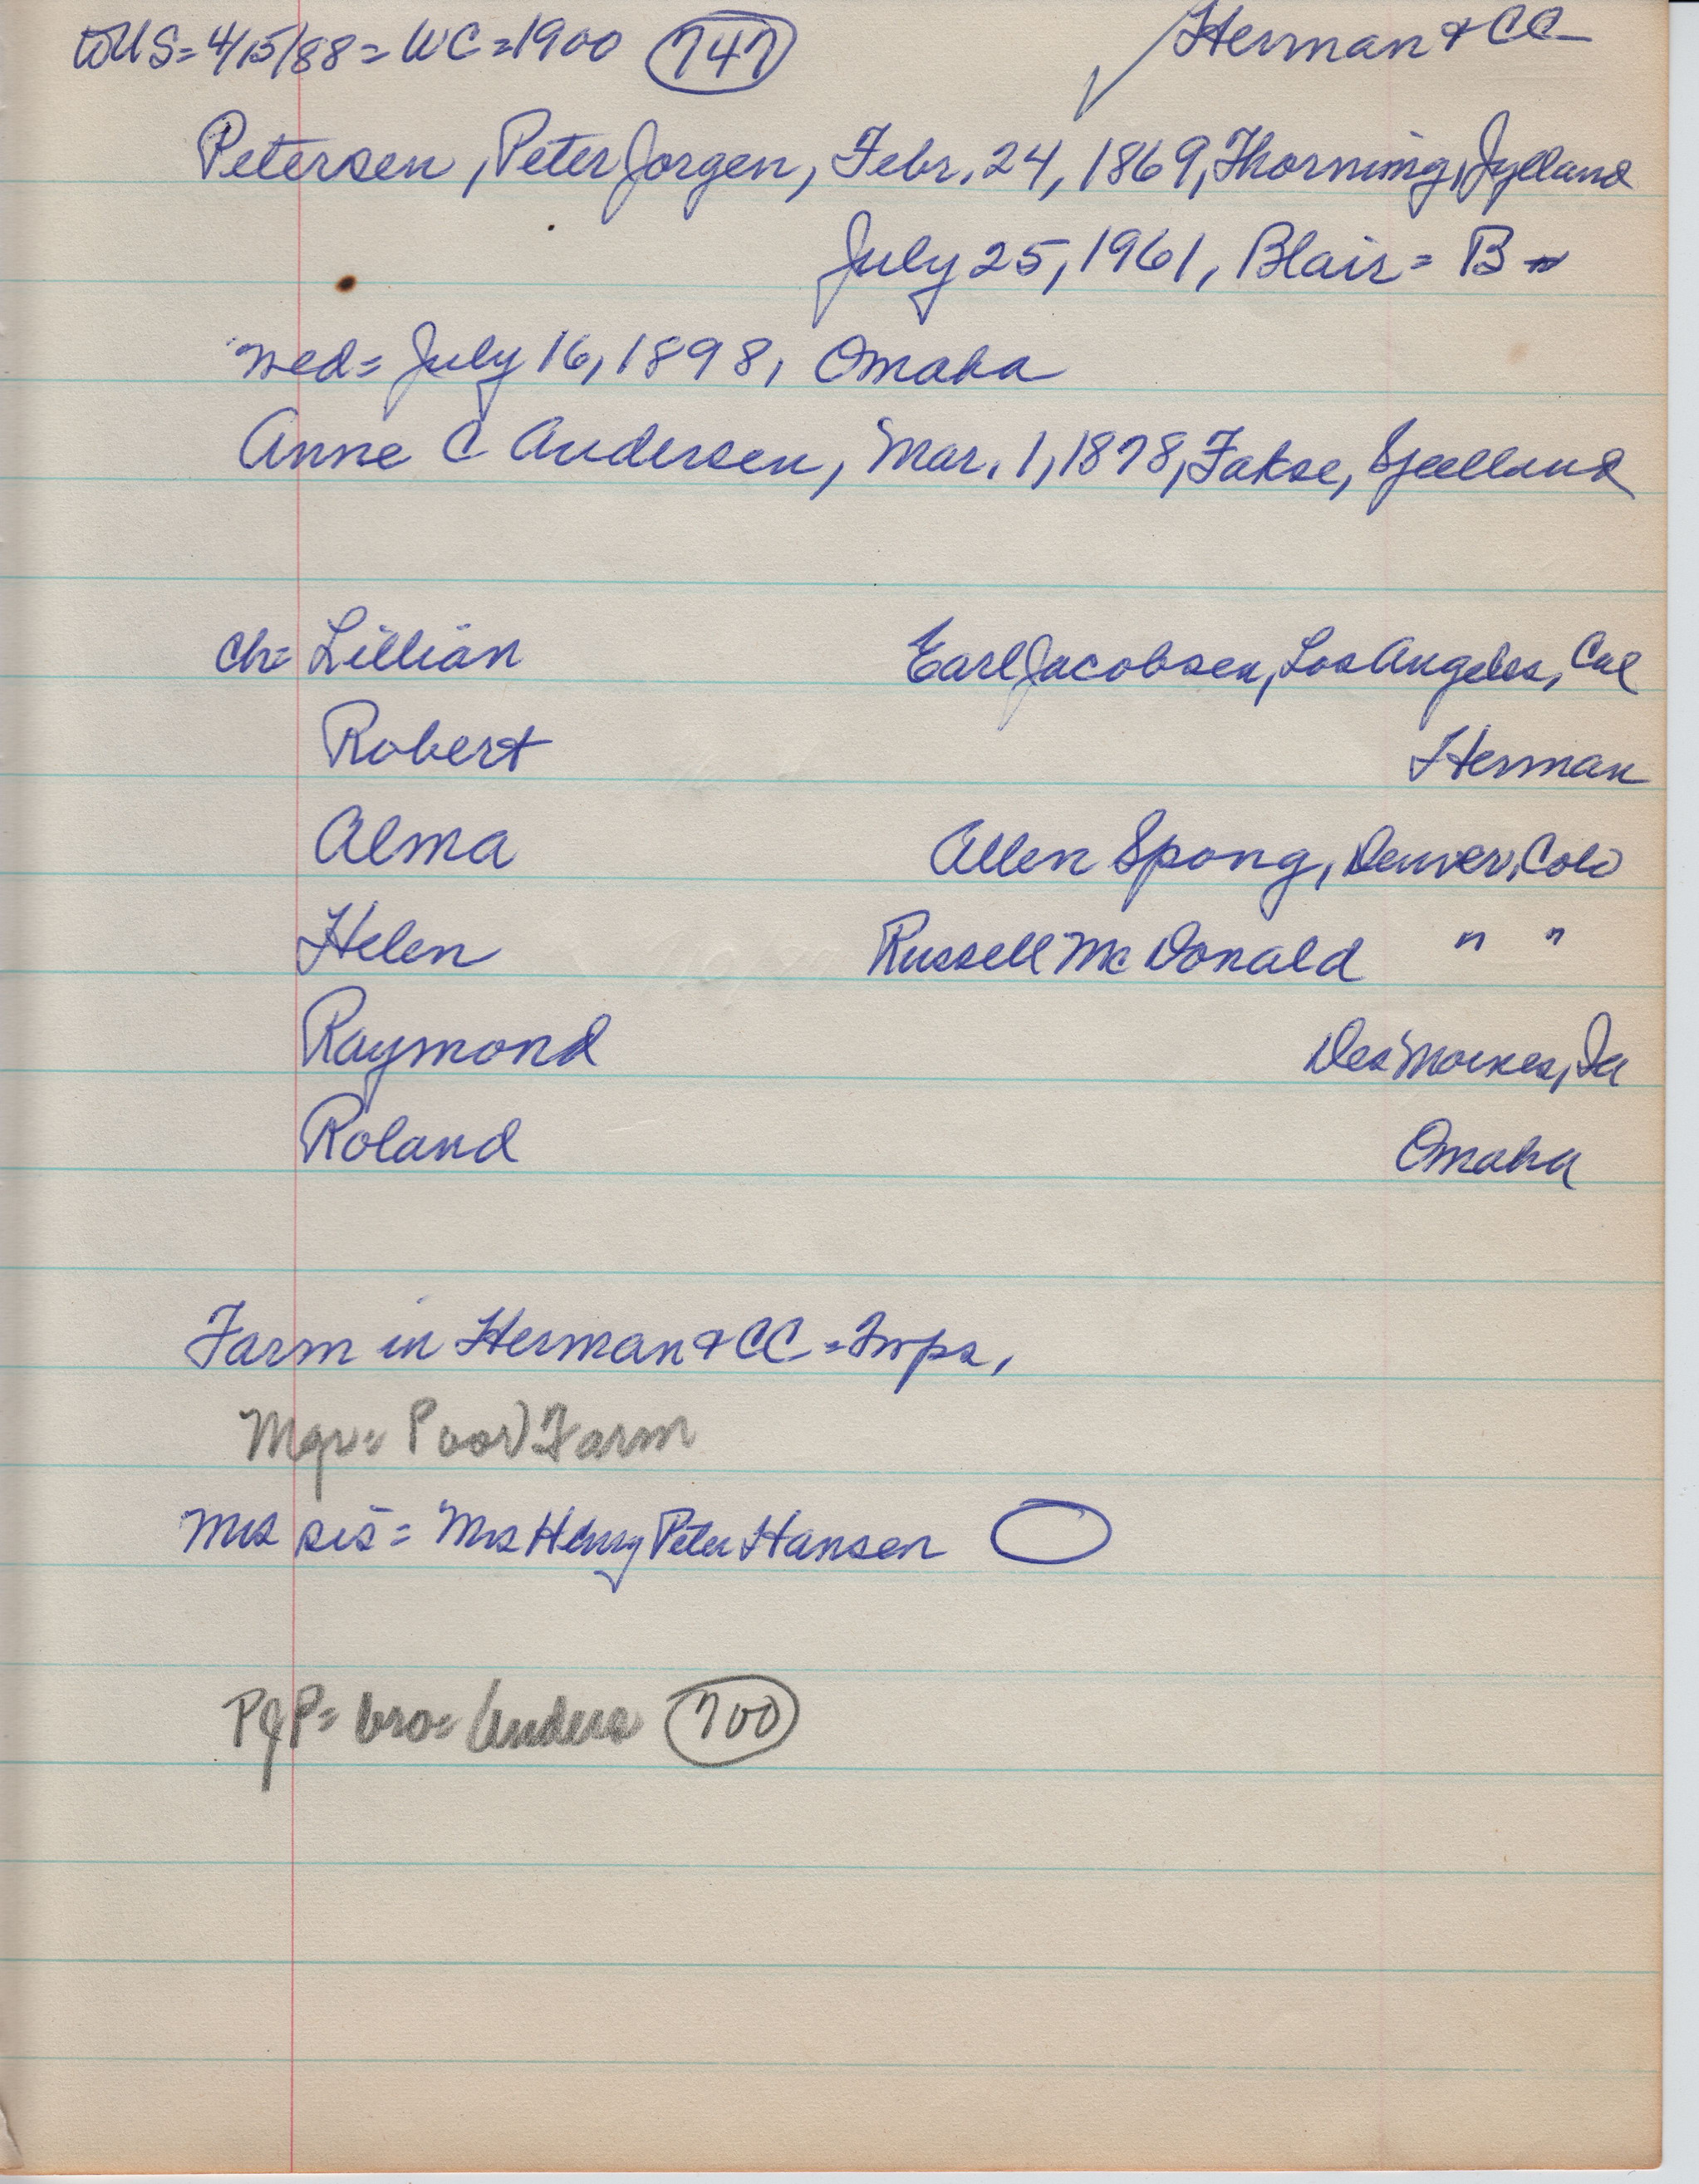 to US = 4/15/88 = WC = 1900 747 Herman & CC
Petersen, Peter Jorgen, Febr. 24, 1869, Thorning, Jylland
July 25, 1961, Blair = B
wed = July 16, 1898, Omaha
Anne C Andersen, Mar. 1, 1878, Fakse, Sjælland
ch = Lillian Earl Jacobsen, Los Angeles, Cal
Robert Herman
Alma Allen Spong, Denver, Colo
Helen Russell McDonald " "
Raymond Des Moines, Ia
Roland Omaha
Farm in Herman & CC = Twps,
Mgr = Poor Farm
Mrs sis = Mrs Henry Peter Hansen
PJP = bro = Anders 700